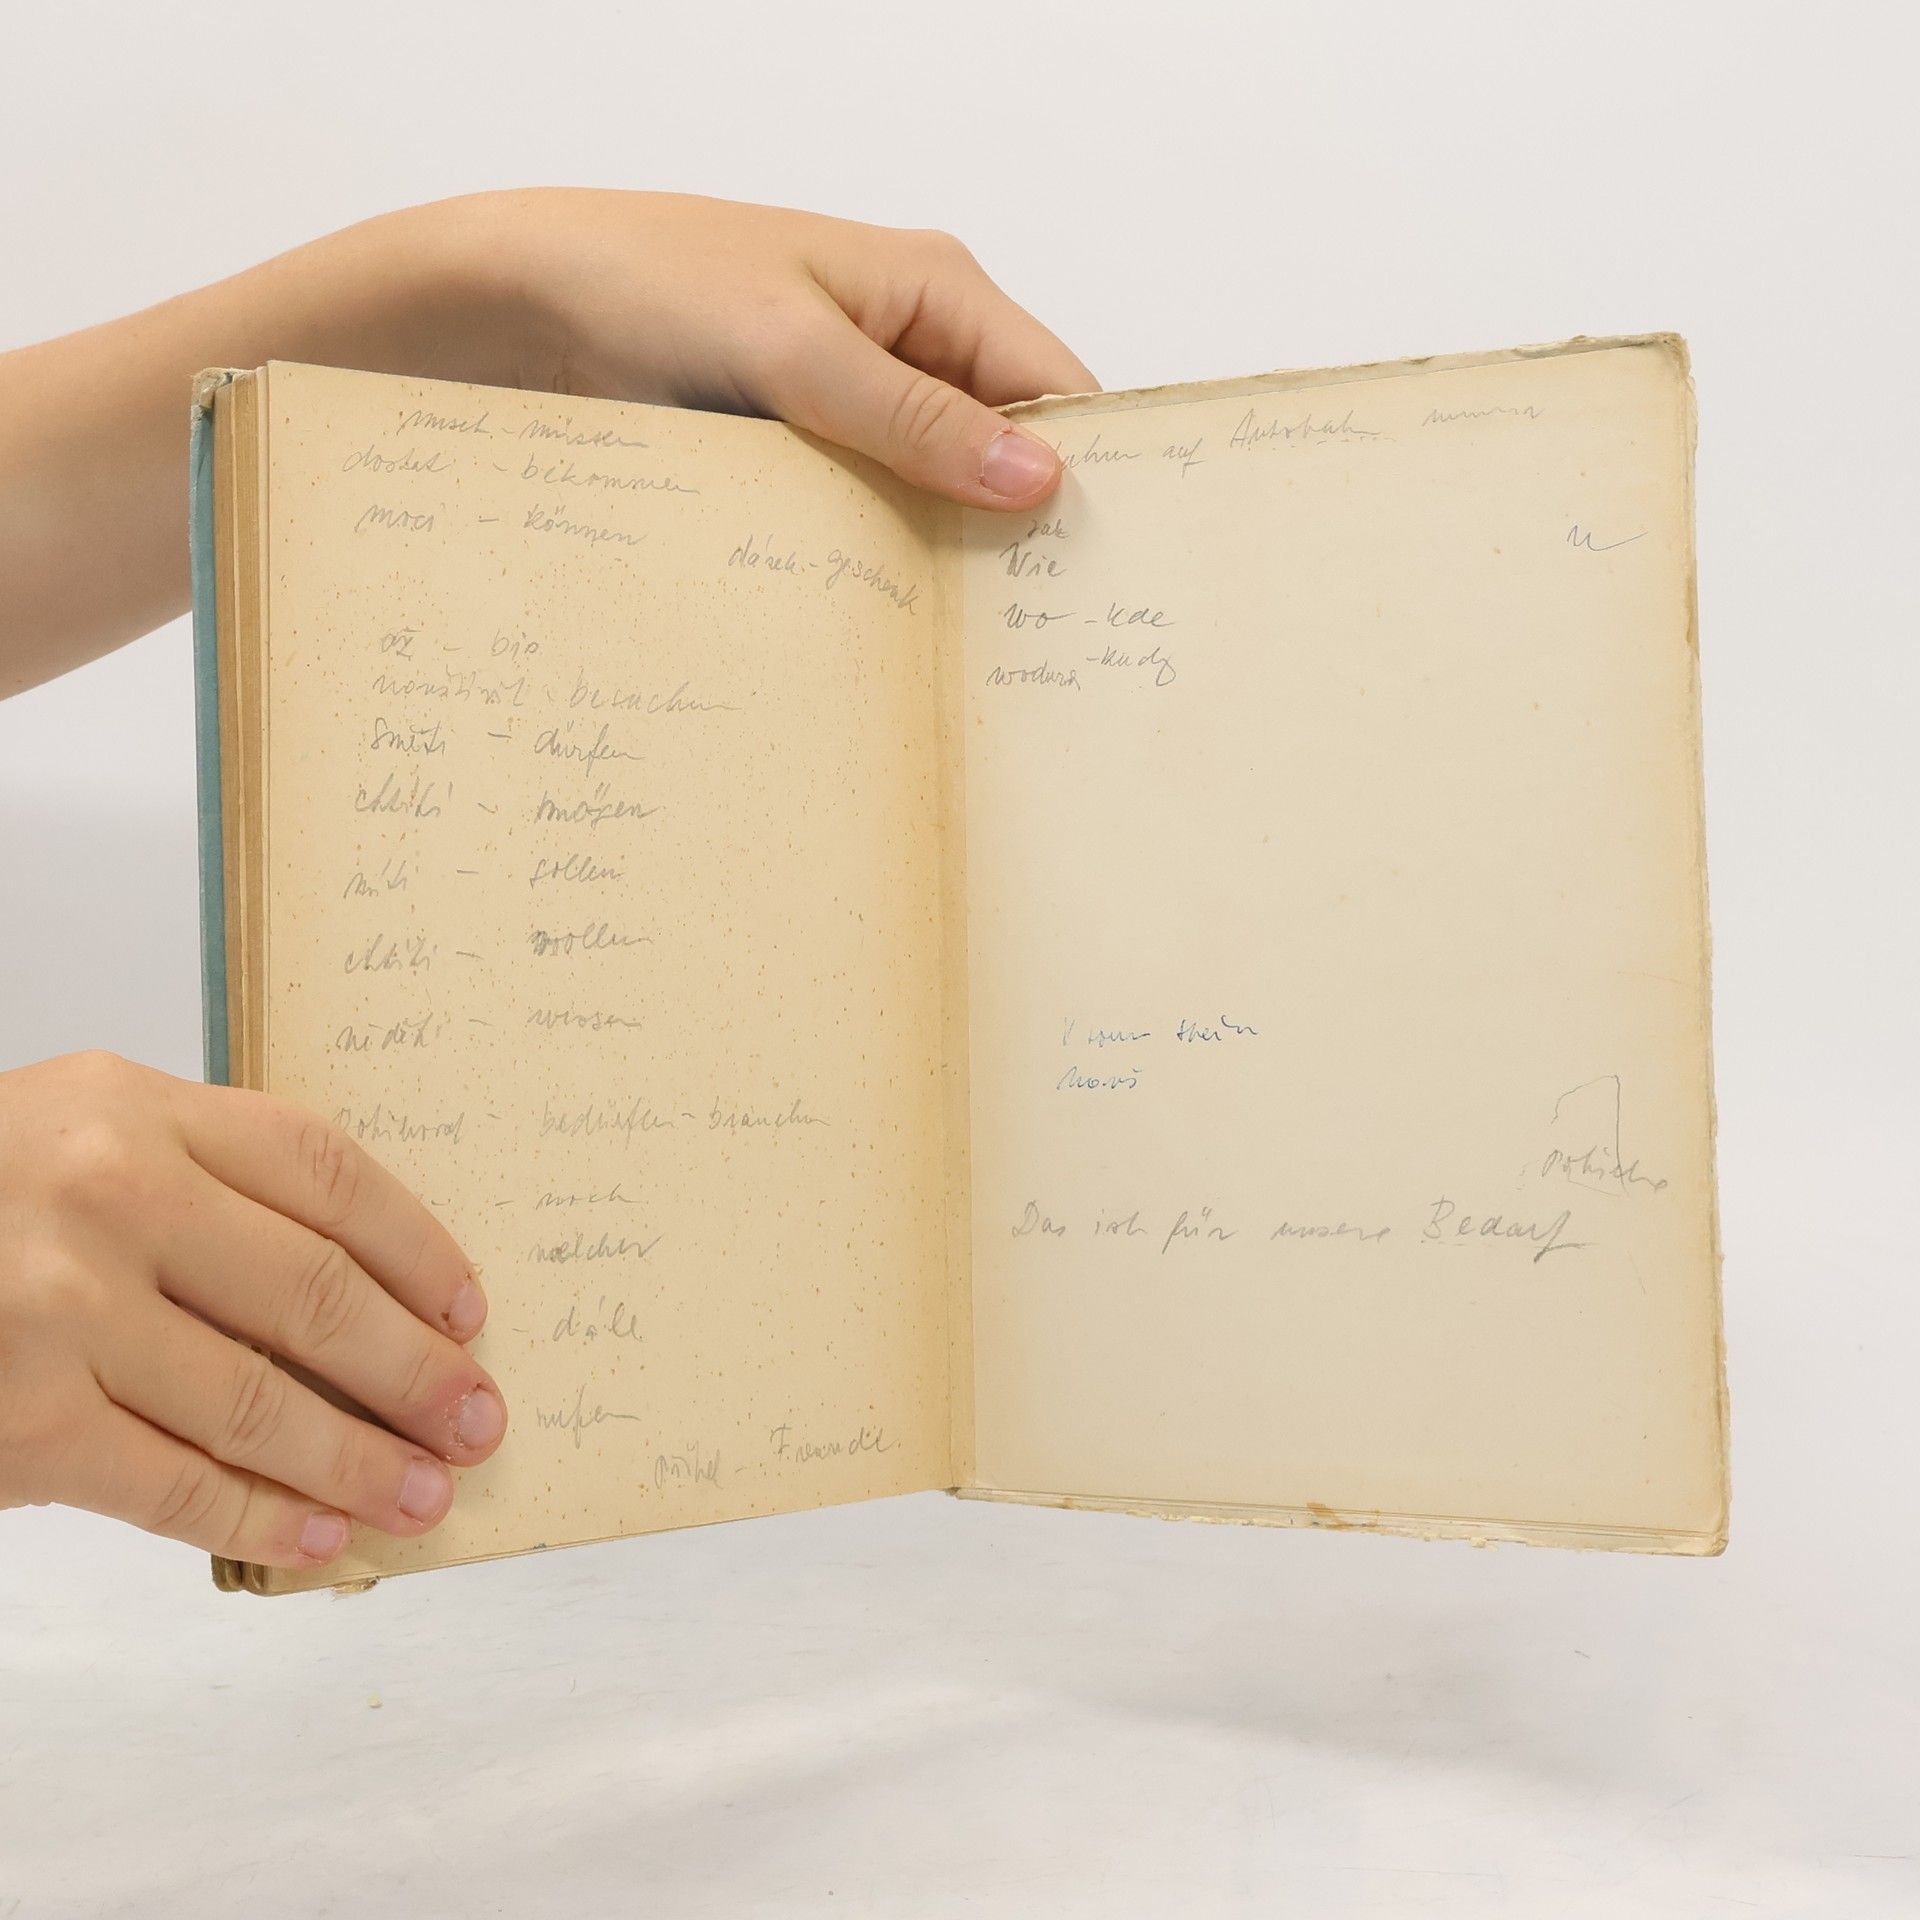 muset - müssen
dostat - bekommen
moci - können
dárek - geschenk
až - bis
navštívit - besuchen
směti - dürfen
chtíti - mögen
míti - sollen
chtíti - wollen
věděti - wissen
Potřebovat - bedürfen - brauchen
- noch
welcher
- dále
rufen
přítel - Freund
fahren auf Autobahn
Jak
Wie
wo - kde
- kudy
Das ist für unsere Bedarf